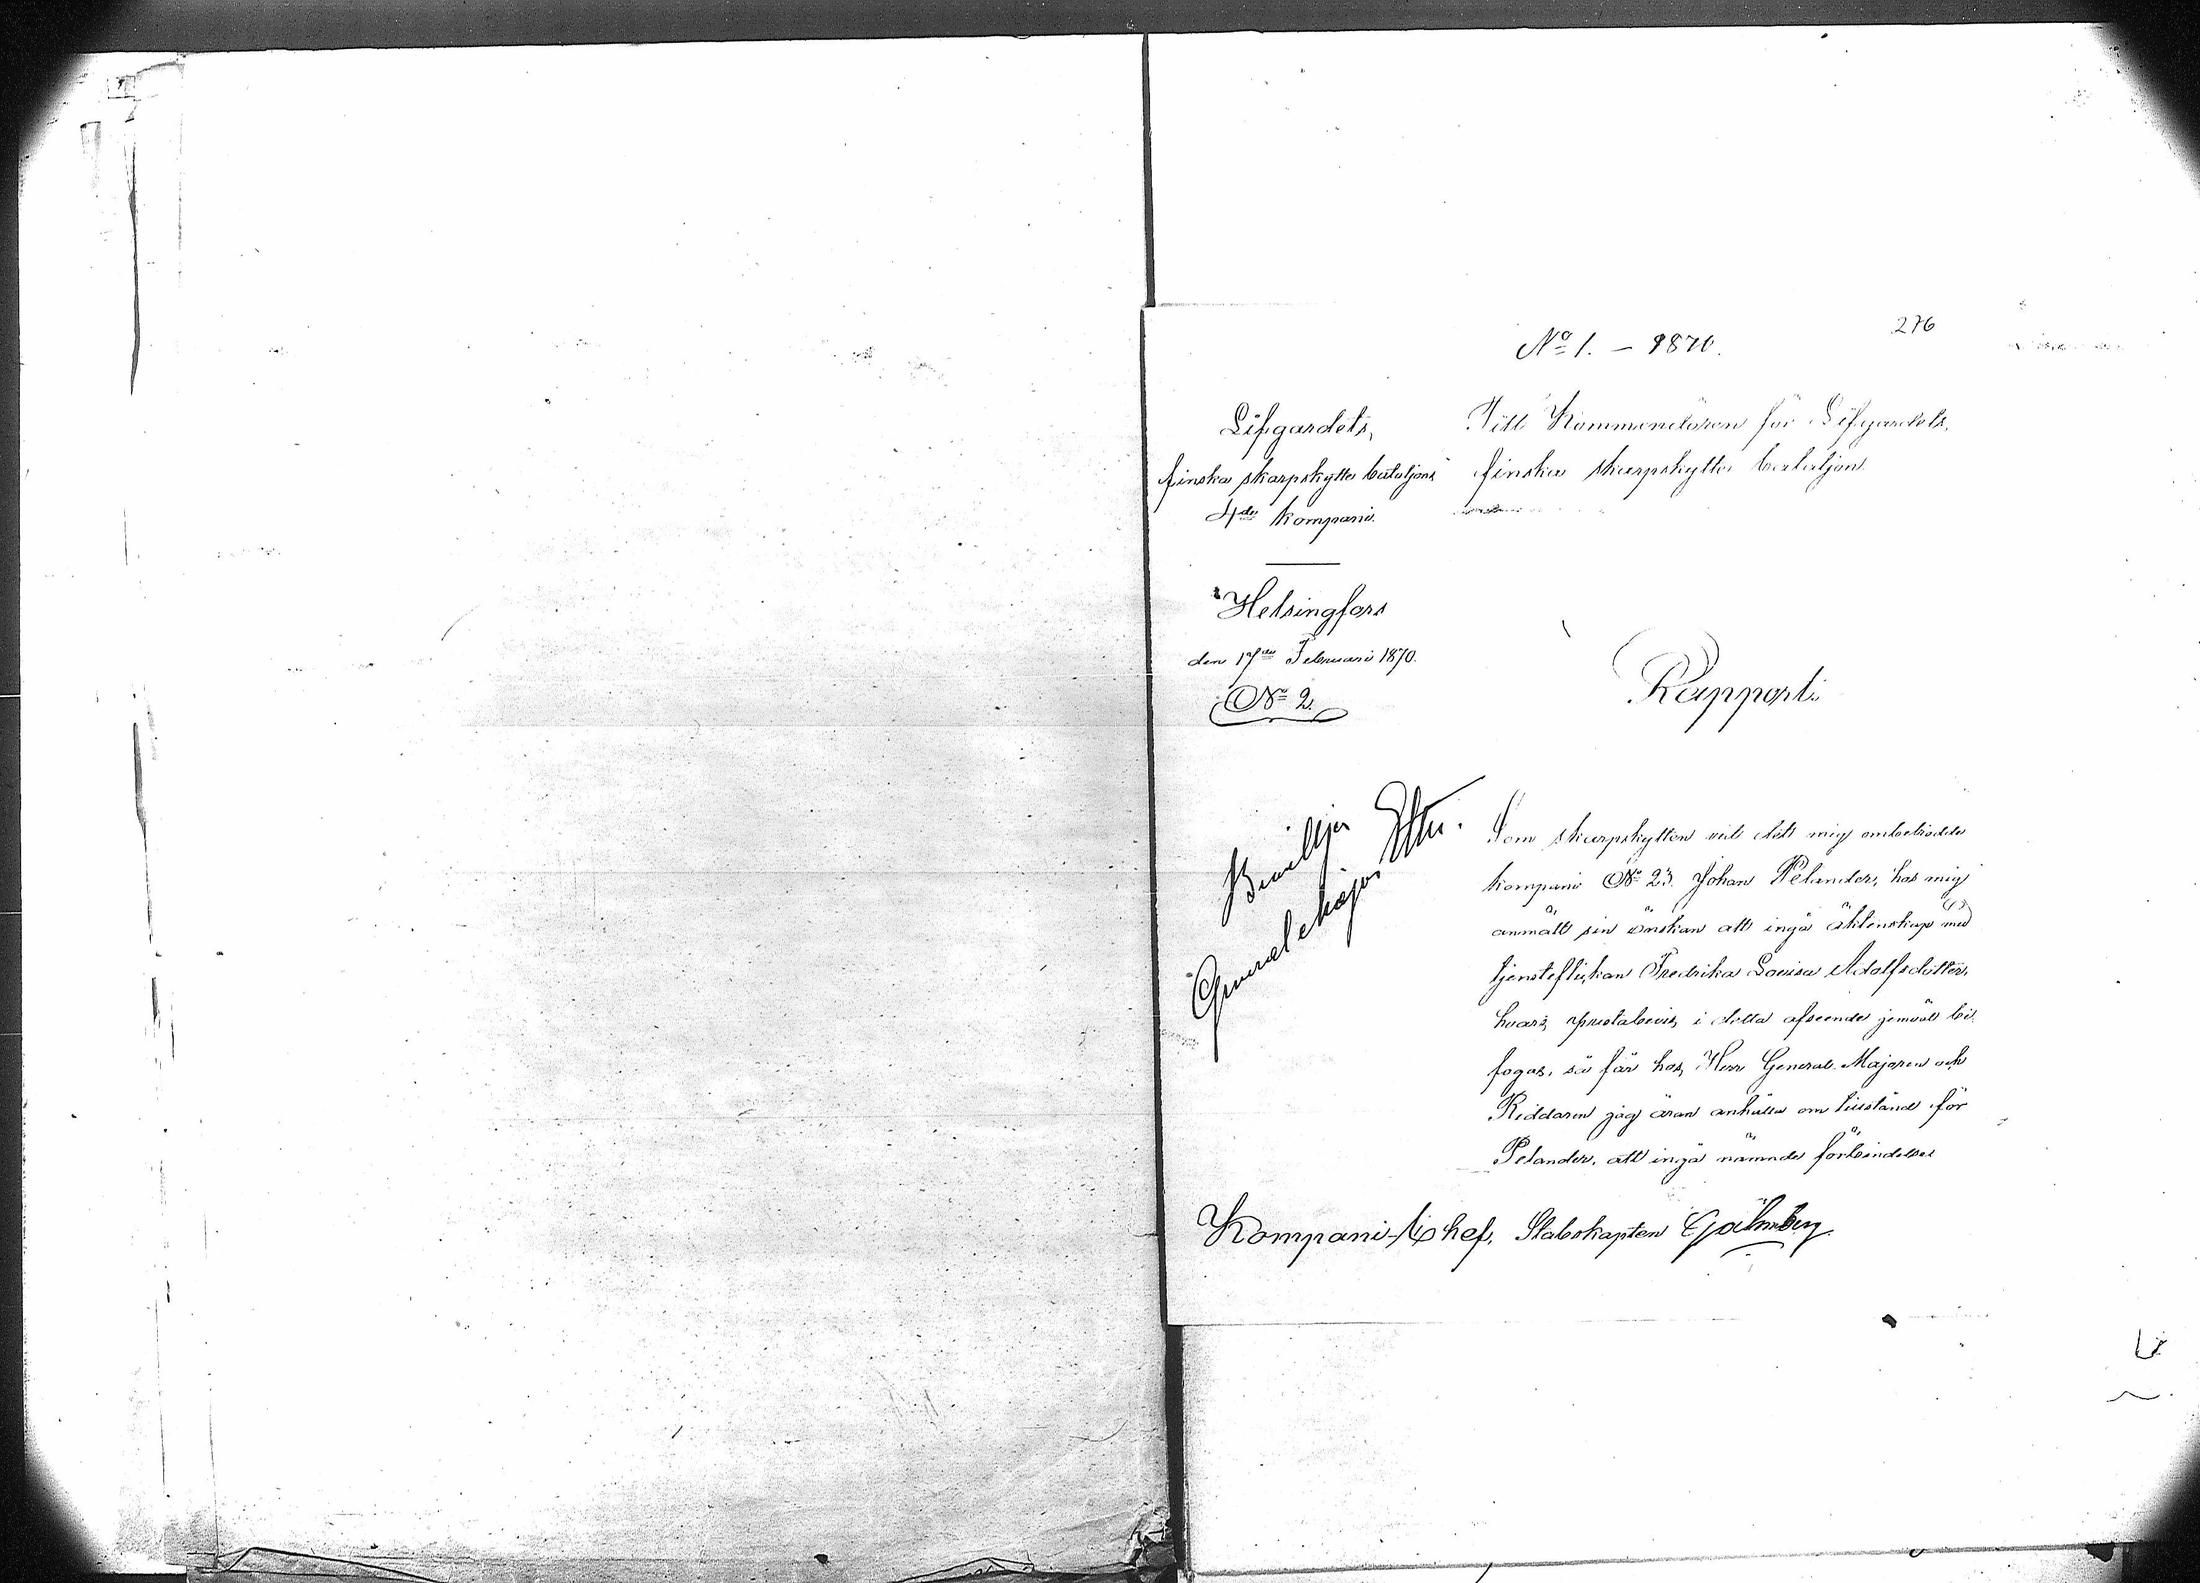 276
No 1. – 1870.
Lifgardets,
finska skarpskytte bataljons
4de kompani.
Till Kommendören för Lifgardets,
finska skarpskytte bataljon.
Helsingfors
den 17de Februari 1870.
No 2.
Rapport.
Beviljas
General Major
Som skarpskytten vid det mig anbetrodde
kompani No 23. Johan Pelander, hos mig
anmält sin önskan att ingå äktenskap med
tjensteflickan Fredrika Lovisa Adolfsdotter,
hvars prestabevis i detta afseende jemväl bi-
fogas, så får hos Herr General-Majoren och
Riddaren jag äran anhålla om tillstånd för
Pelander, att ingå nämnde förbindelse
Kompani-Chef, Stabskapten